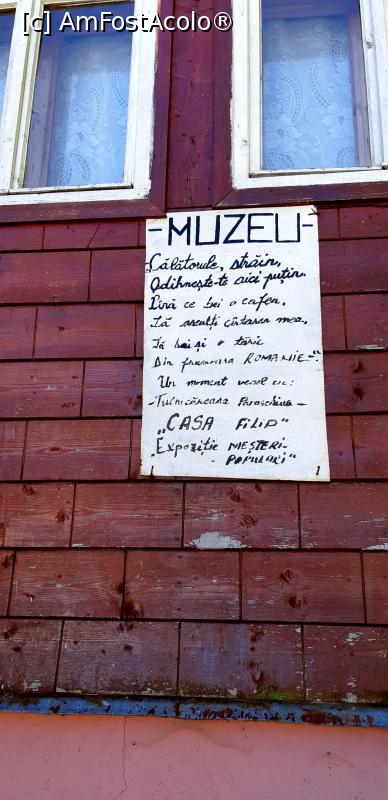 [c] AmFostAcolo®
-MUZEU-
Călătorule, străin,
Odihnește-te aici puțin.
Pînă ce bei o cafea,
Să asculți cîntarea mea,
Să bei și o tărie
Din frumoasa ROMANIE-".
Un moment vesel cu:
-Tulnicăreasa Paraschiva-
"CASA FILIP"
"Expoziție MEȘTERI-
- POPULARI"